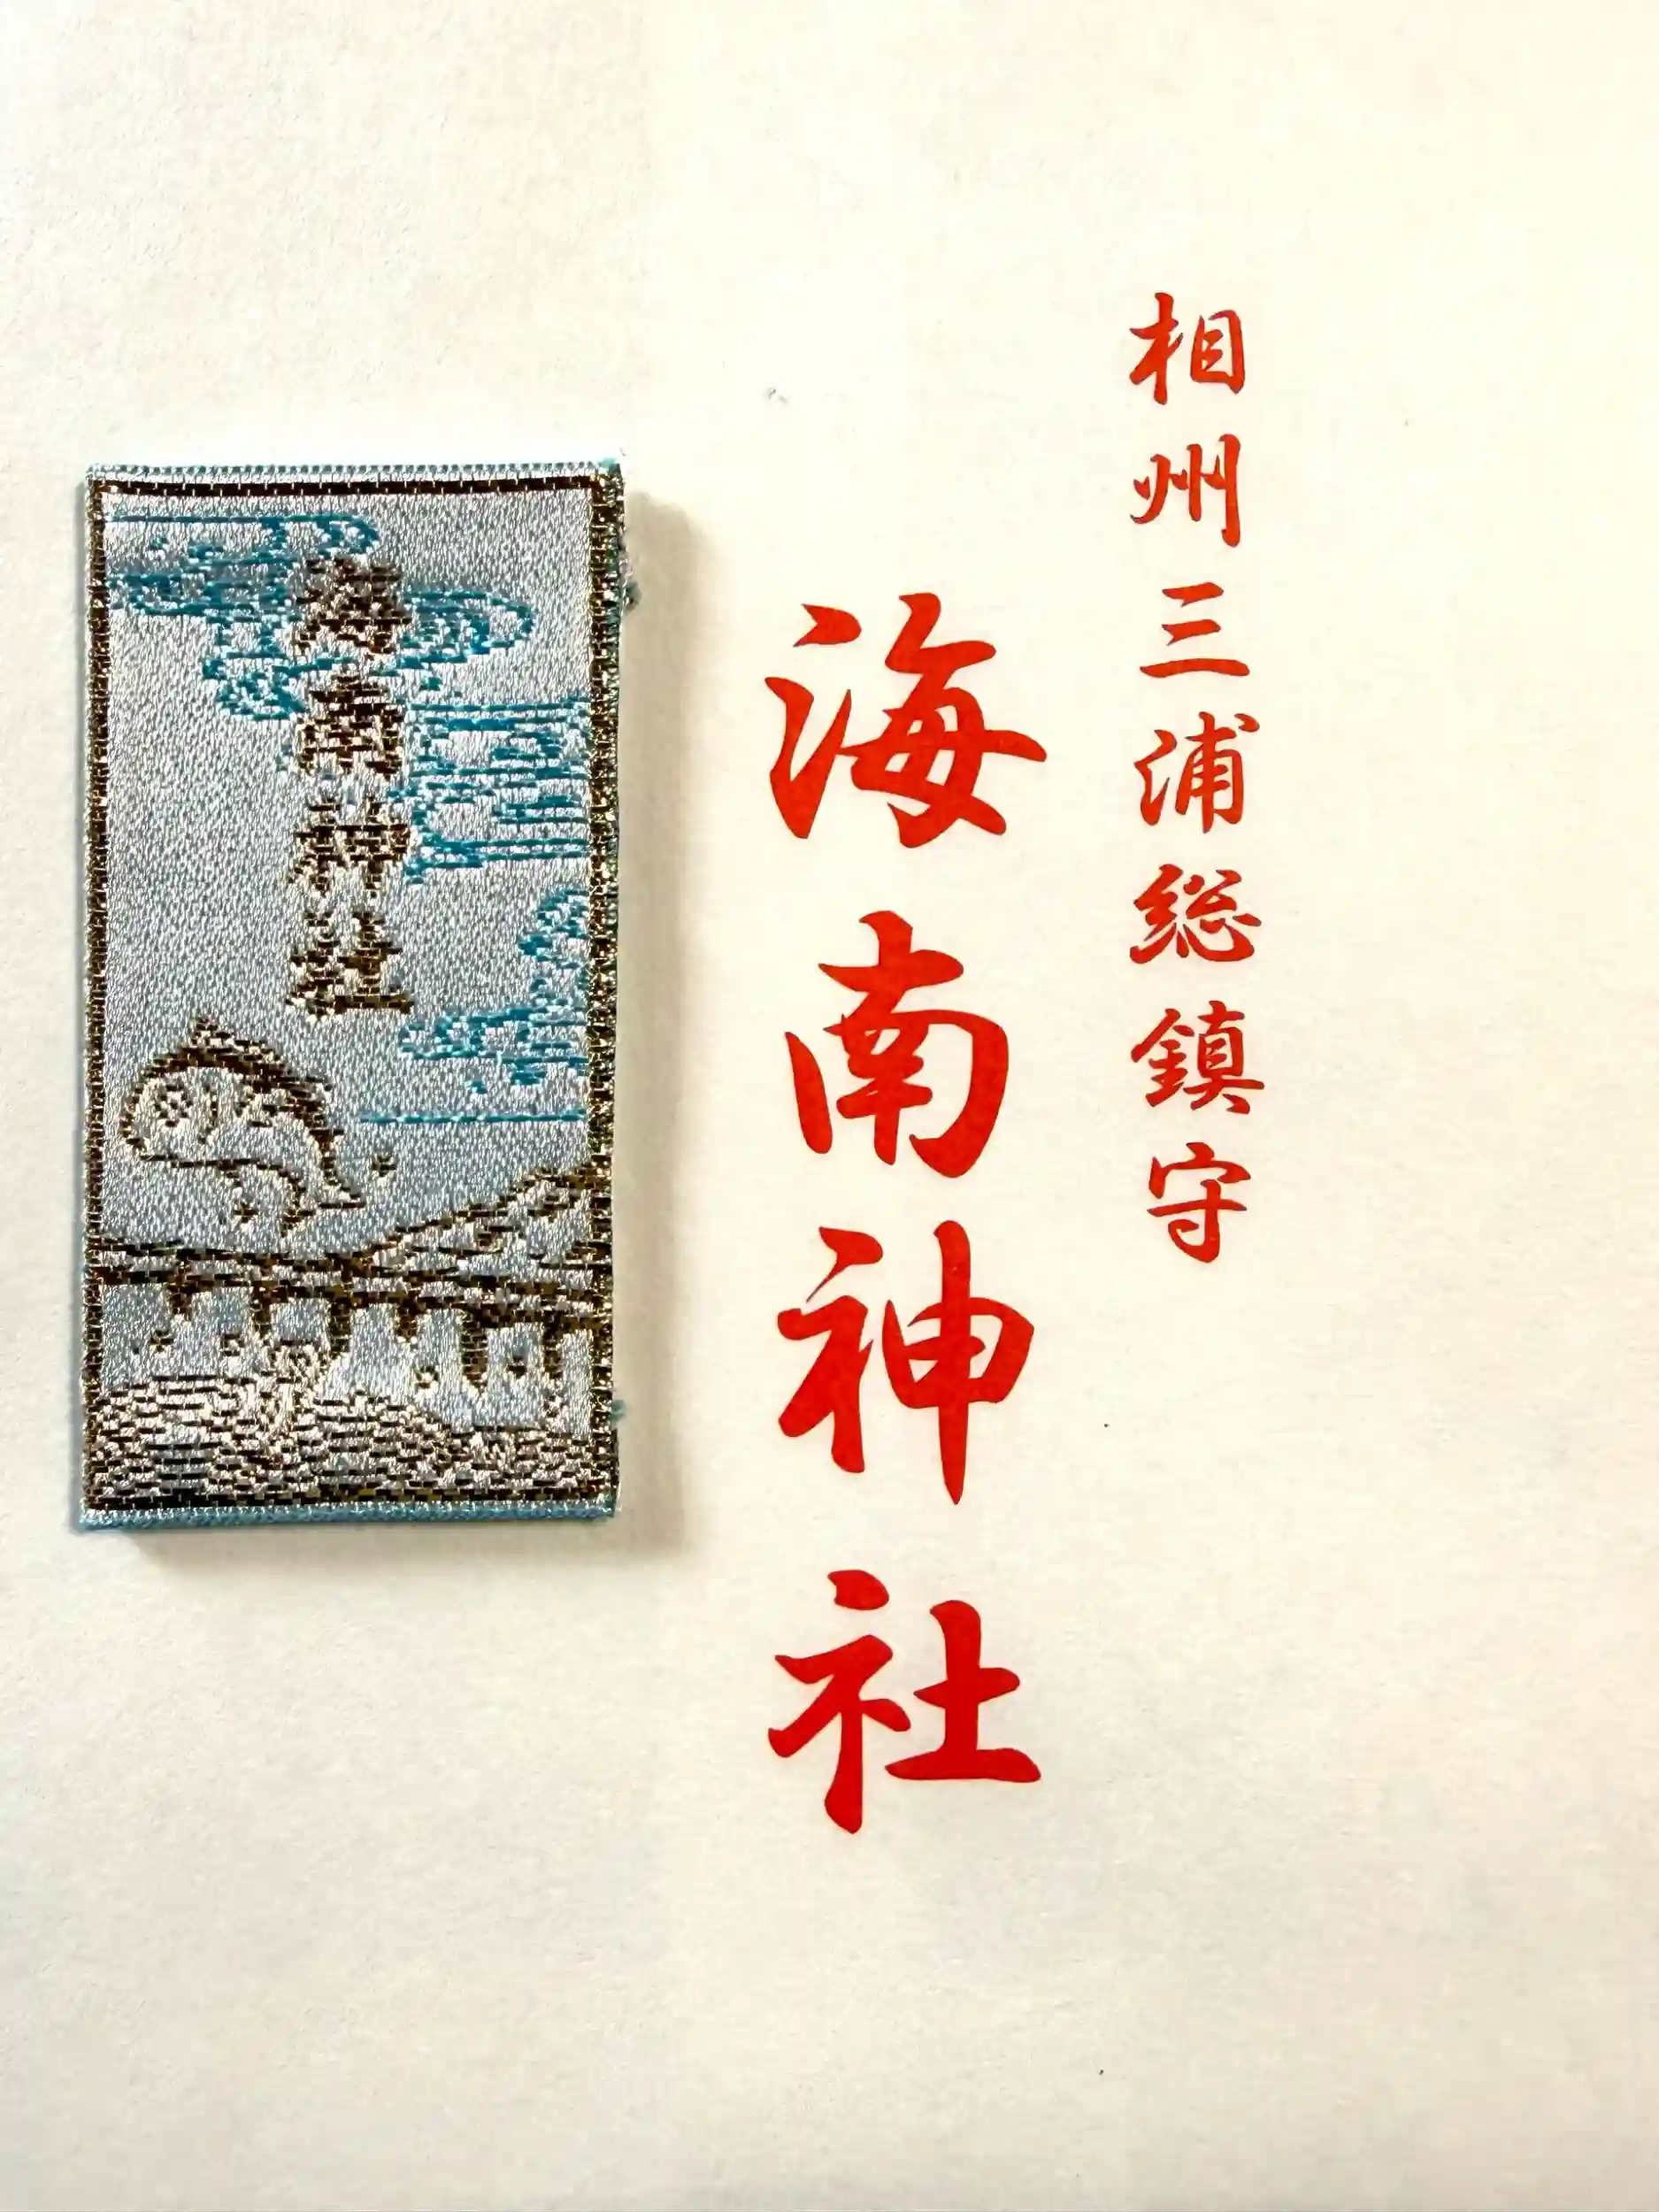 相州三浦総鎮守
海南神社
海南神社